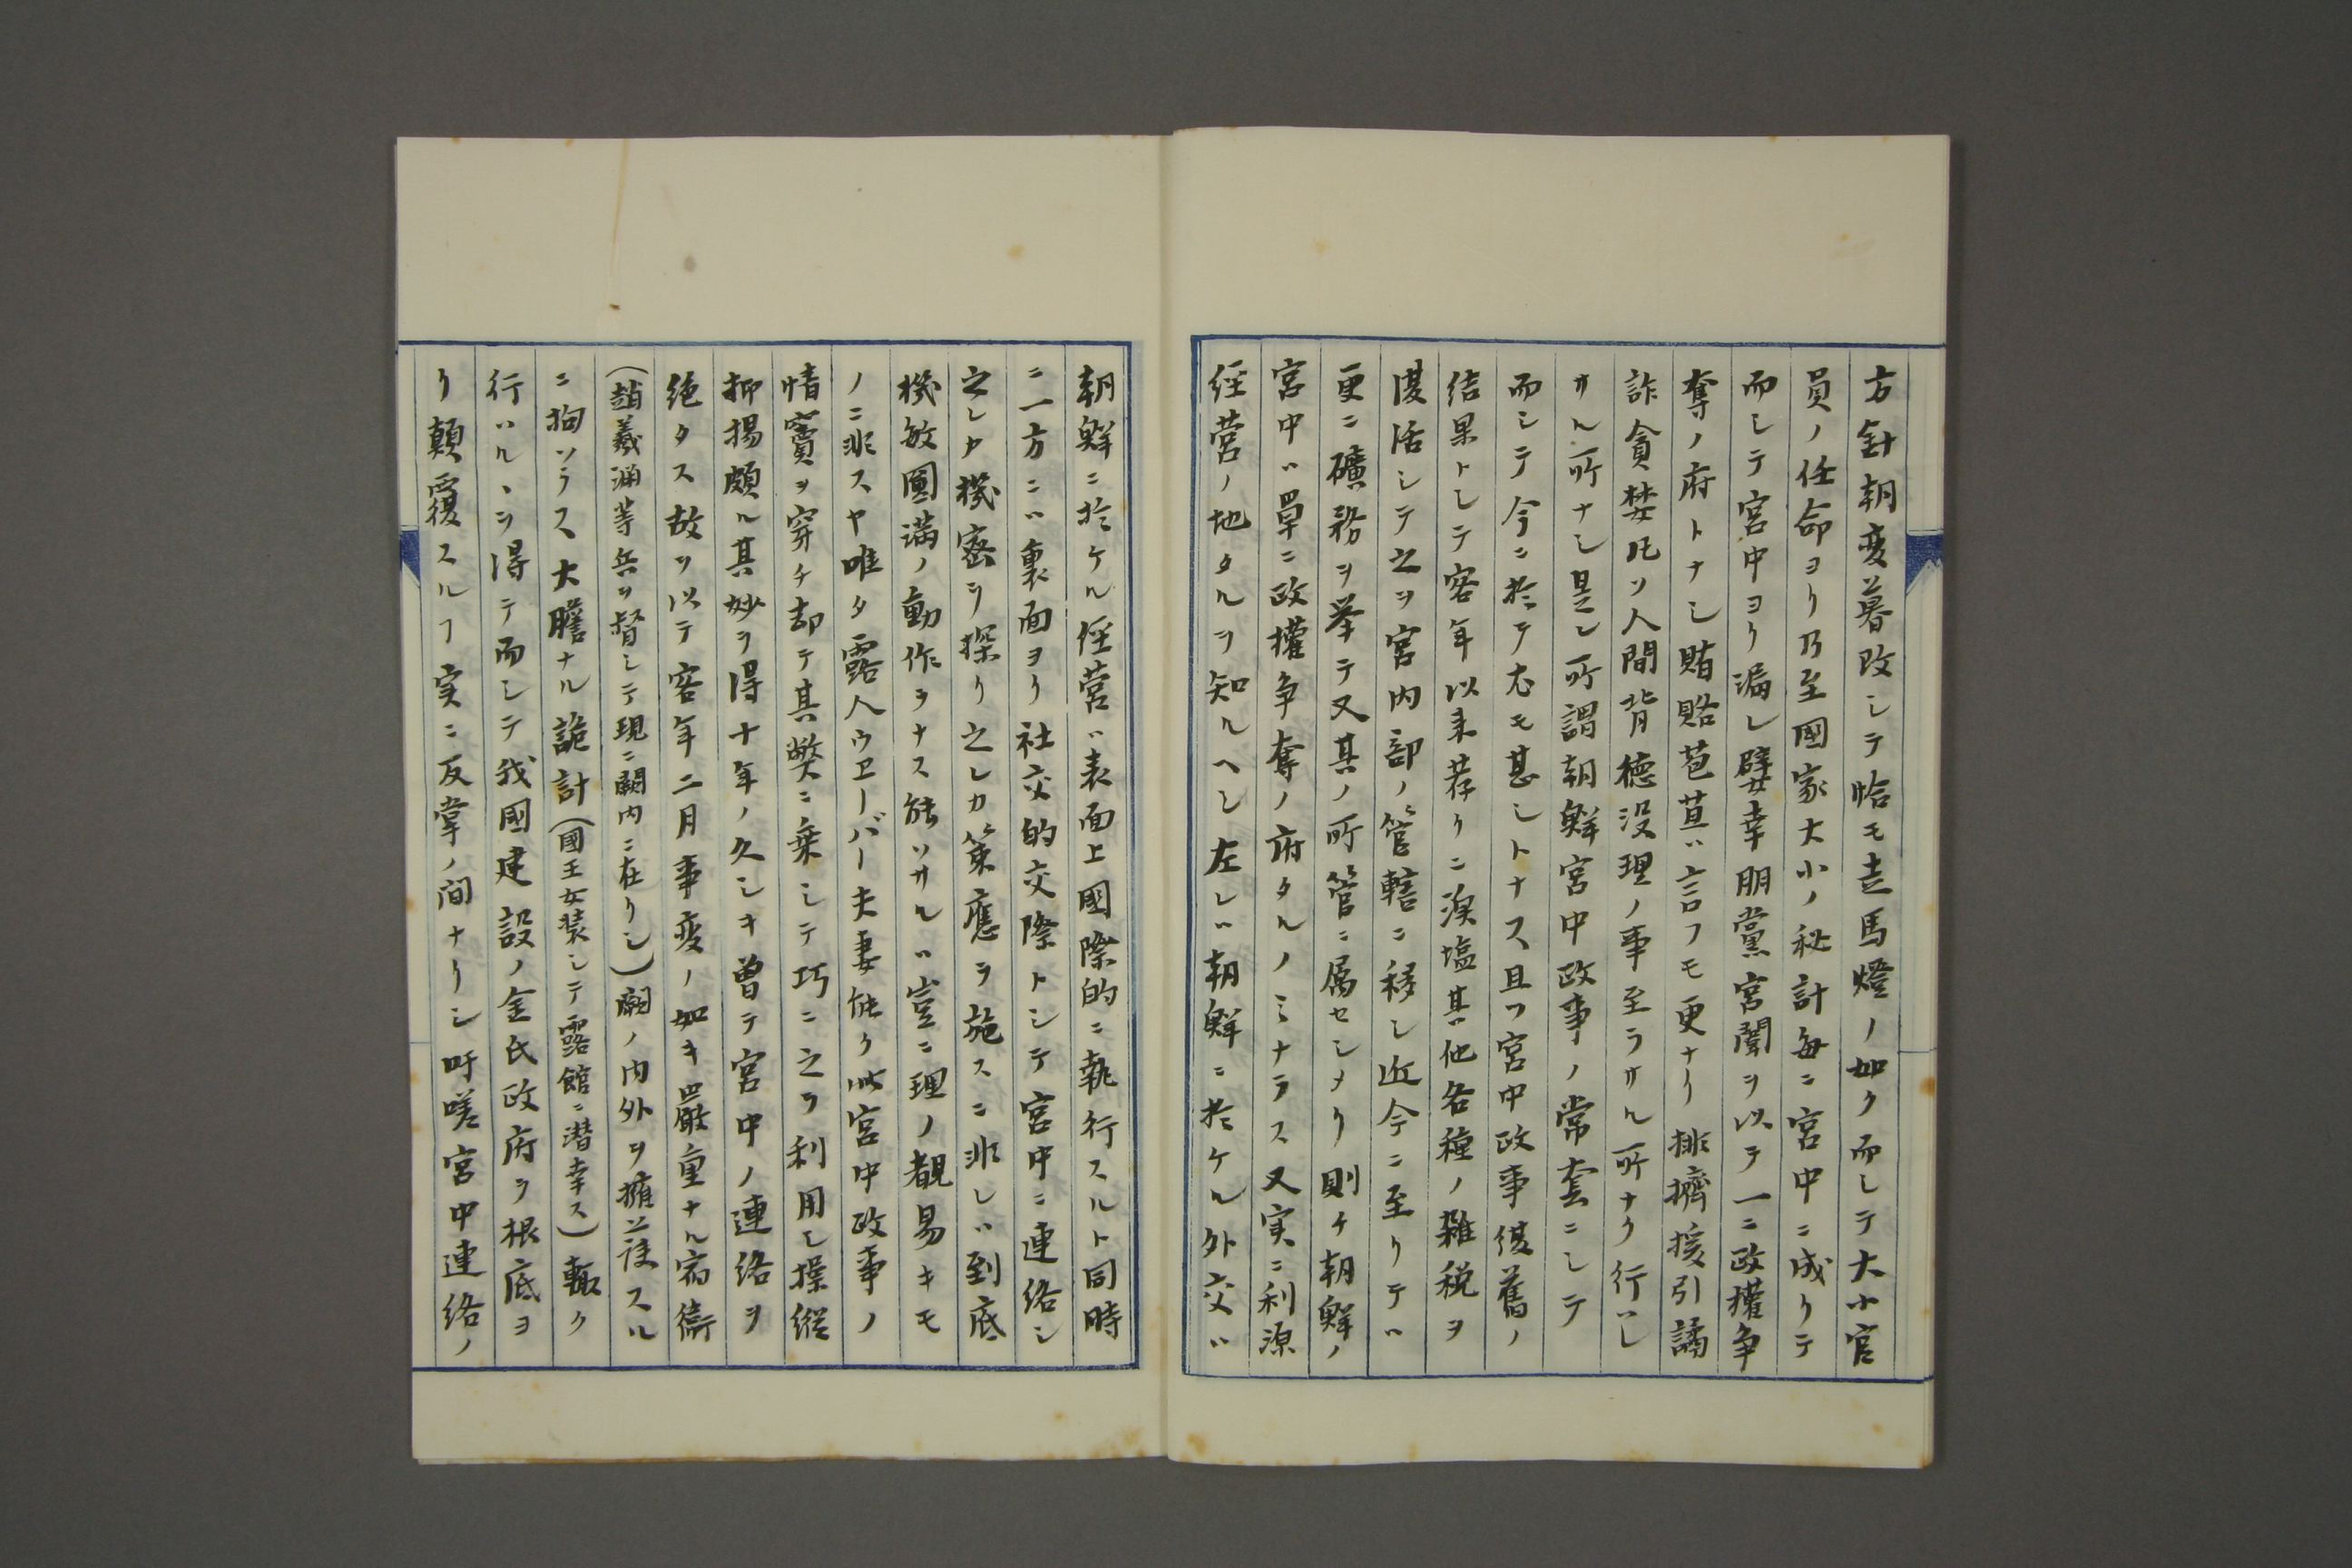 方針朝変暮改シテ恰モ走馬燈ノ如ク而シテ大小官
員ノ任命ヨリ乃至國家大小ノ秘計毎ニ宮中ニ成リテ
而シテ宮中ヨリ漏レ嬖幸朋黨宮闈ヲ以テ一ニ政權争
奪ノ府トナシ賄賂苞苴ハ言フモ更ナリ排擠援引譎
詐貪婪凡ソ人間背徳没理ノ事至ラサル所ナク行ハレ
サル所ナシ是レ所謂朝鮮宮中政事ノ常套ニシテ
而シテ今ニ於テ尤モ甚シトナス且ツ宮中政事復舊ノ
結果トシテ客年以来荐リニ漁塩其他各種ノ雑税ヲ
復活シテ之ヲ宮内部ノ管轄ニ移シ近今ニ至リテハ
更ニ礦務ヲ挙テ又其ノ所管ニ属セシメリ則チ朝鮮ノ
宮中ハ單ニ政權争奪ノ府タルノミナラス又実ニ利源
経営ノ地タルヲ知ルヘシ左レハ朝鮮ニ於ケル外交ハ
朝鮮ニ於ケル経営ハ表面上國際的ニ執行スルト同時
ニ一方ニハ裏面ヨリ社交的交際トシテ宮中ニ連絡シ
之レカ機密ヲ探リ之レカ策應ヲ施スニ非レハ到底
機敏圓滿ノ動作ヲナス能ハサルハ豈ニ理ノ覩易キモ
ノニ非スヤ唯タ露人ウエーバー夫妻能ク此宮中政事ノ
情竇ヲ穿チ却テ其弊ニ乗シテ巧ニ之ヲ利用シ操縦
抑揚頗ル其妙ヲ得十年ノ久シキ曽テ宮中ノ連絡ヲ
絶タス故ヲ以テ客年二月事変ノ如キ嚴重ナル宿衞
（趙羲渊等兵ヲ督シテ現ニ闕内ニ在リシ）闕ノ内外ヲ擁護スル
ニ拘ハラス大膽ナル詭計（國王女装シテ露館ニ潜幸ス）輙ク
行ハルヽヲ得テ而シテ我國建設ノ金氏政府ヲ根底ヨ
リ顛覆スルフ実ニ反掌ノ間ナリシ吁嗟宮中連絡ノ